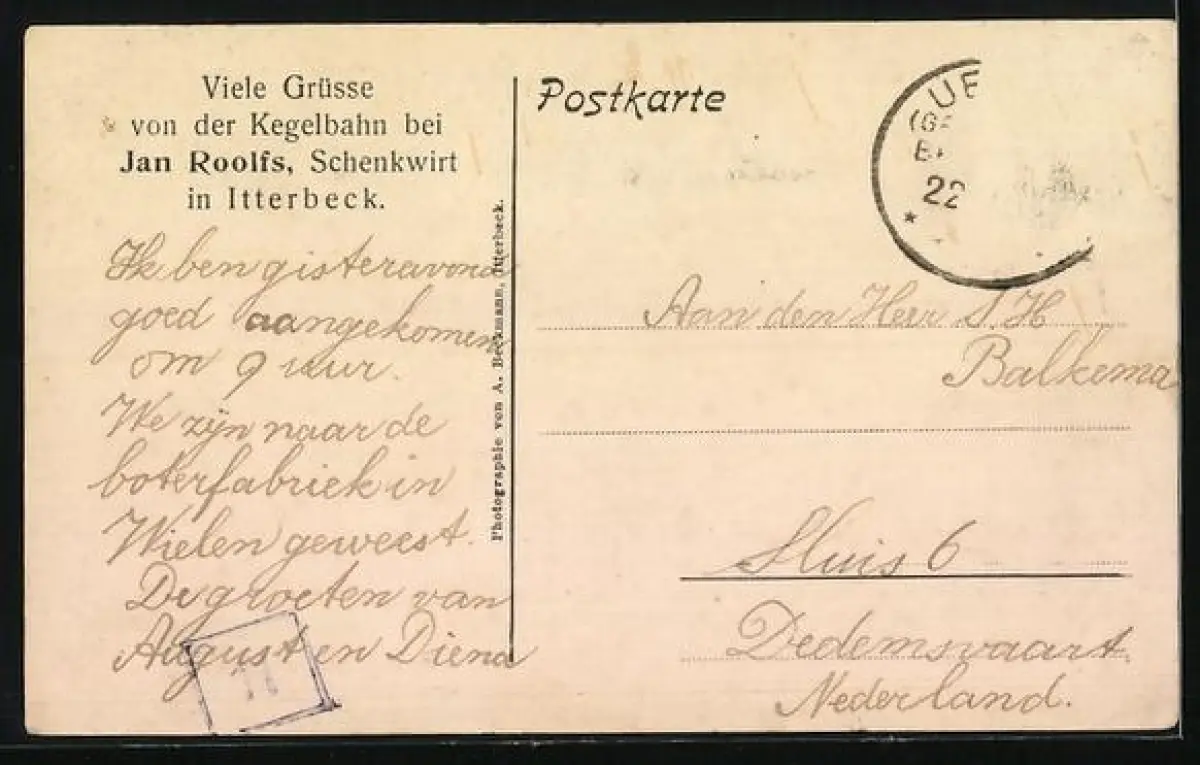 Viele Grüsse
von der Kegelbahn bei
Jan Roolfs, Schenkwirt
in Itterbeck.
Ik ben gisteravond
goed aangekomen
om 9 uur.
We zijn naar de
boterfabriek in
Wielen geweest.
De groeten van
August en Diena
Photographie von A. Beckmann, Itterbeck.
Postkarte
UE
22
Aan den Heer S. H
Balkema
Sluis 6
Dedemsvaart.
Nederland.